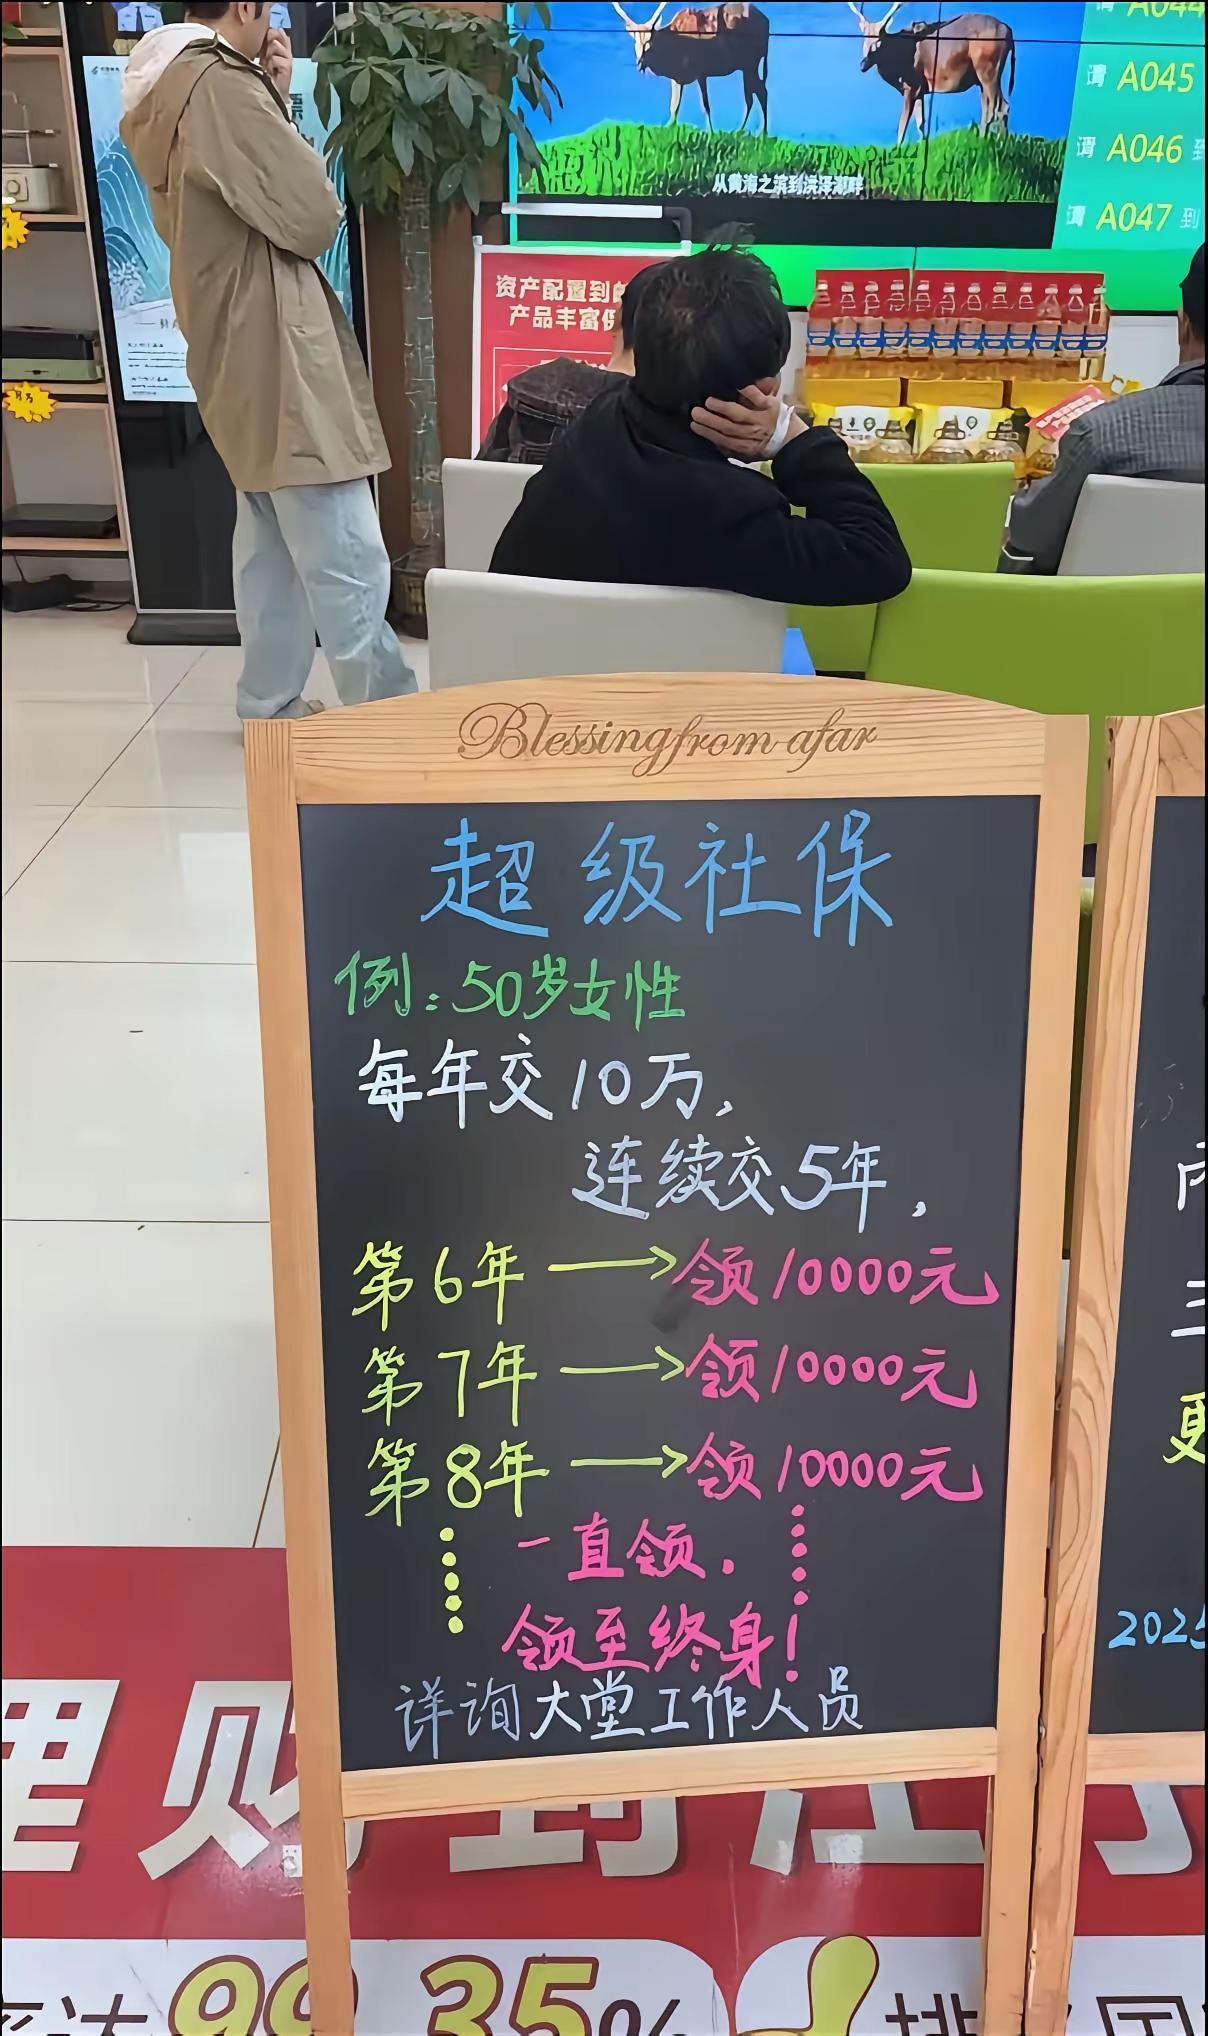 请 A044
请 A045
请 A046 到
请 A047 到
从黄海之滨到洪泽湖畔
资产配置到
产品丰富
Blessing from afar
超级社保
例：50岁女性
每年交10万，
连续交5年，
第6年→领10000元
第7年→领10000元
第8年→领10000元
一直领．
领至终身！
详询大堂工作人员
三
更
202
理财到江
达99.35%
排